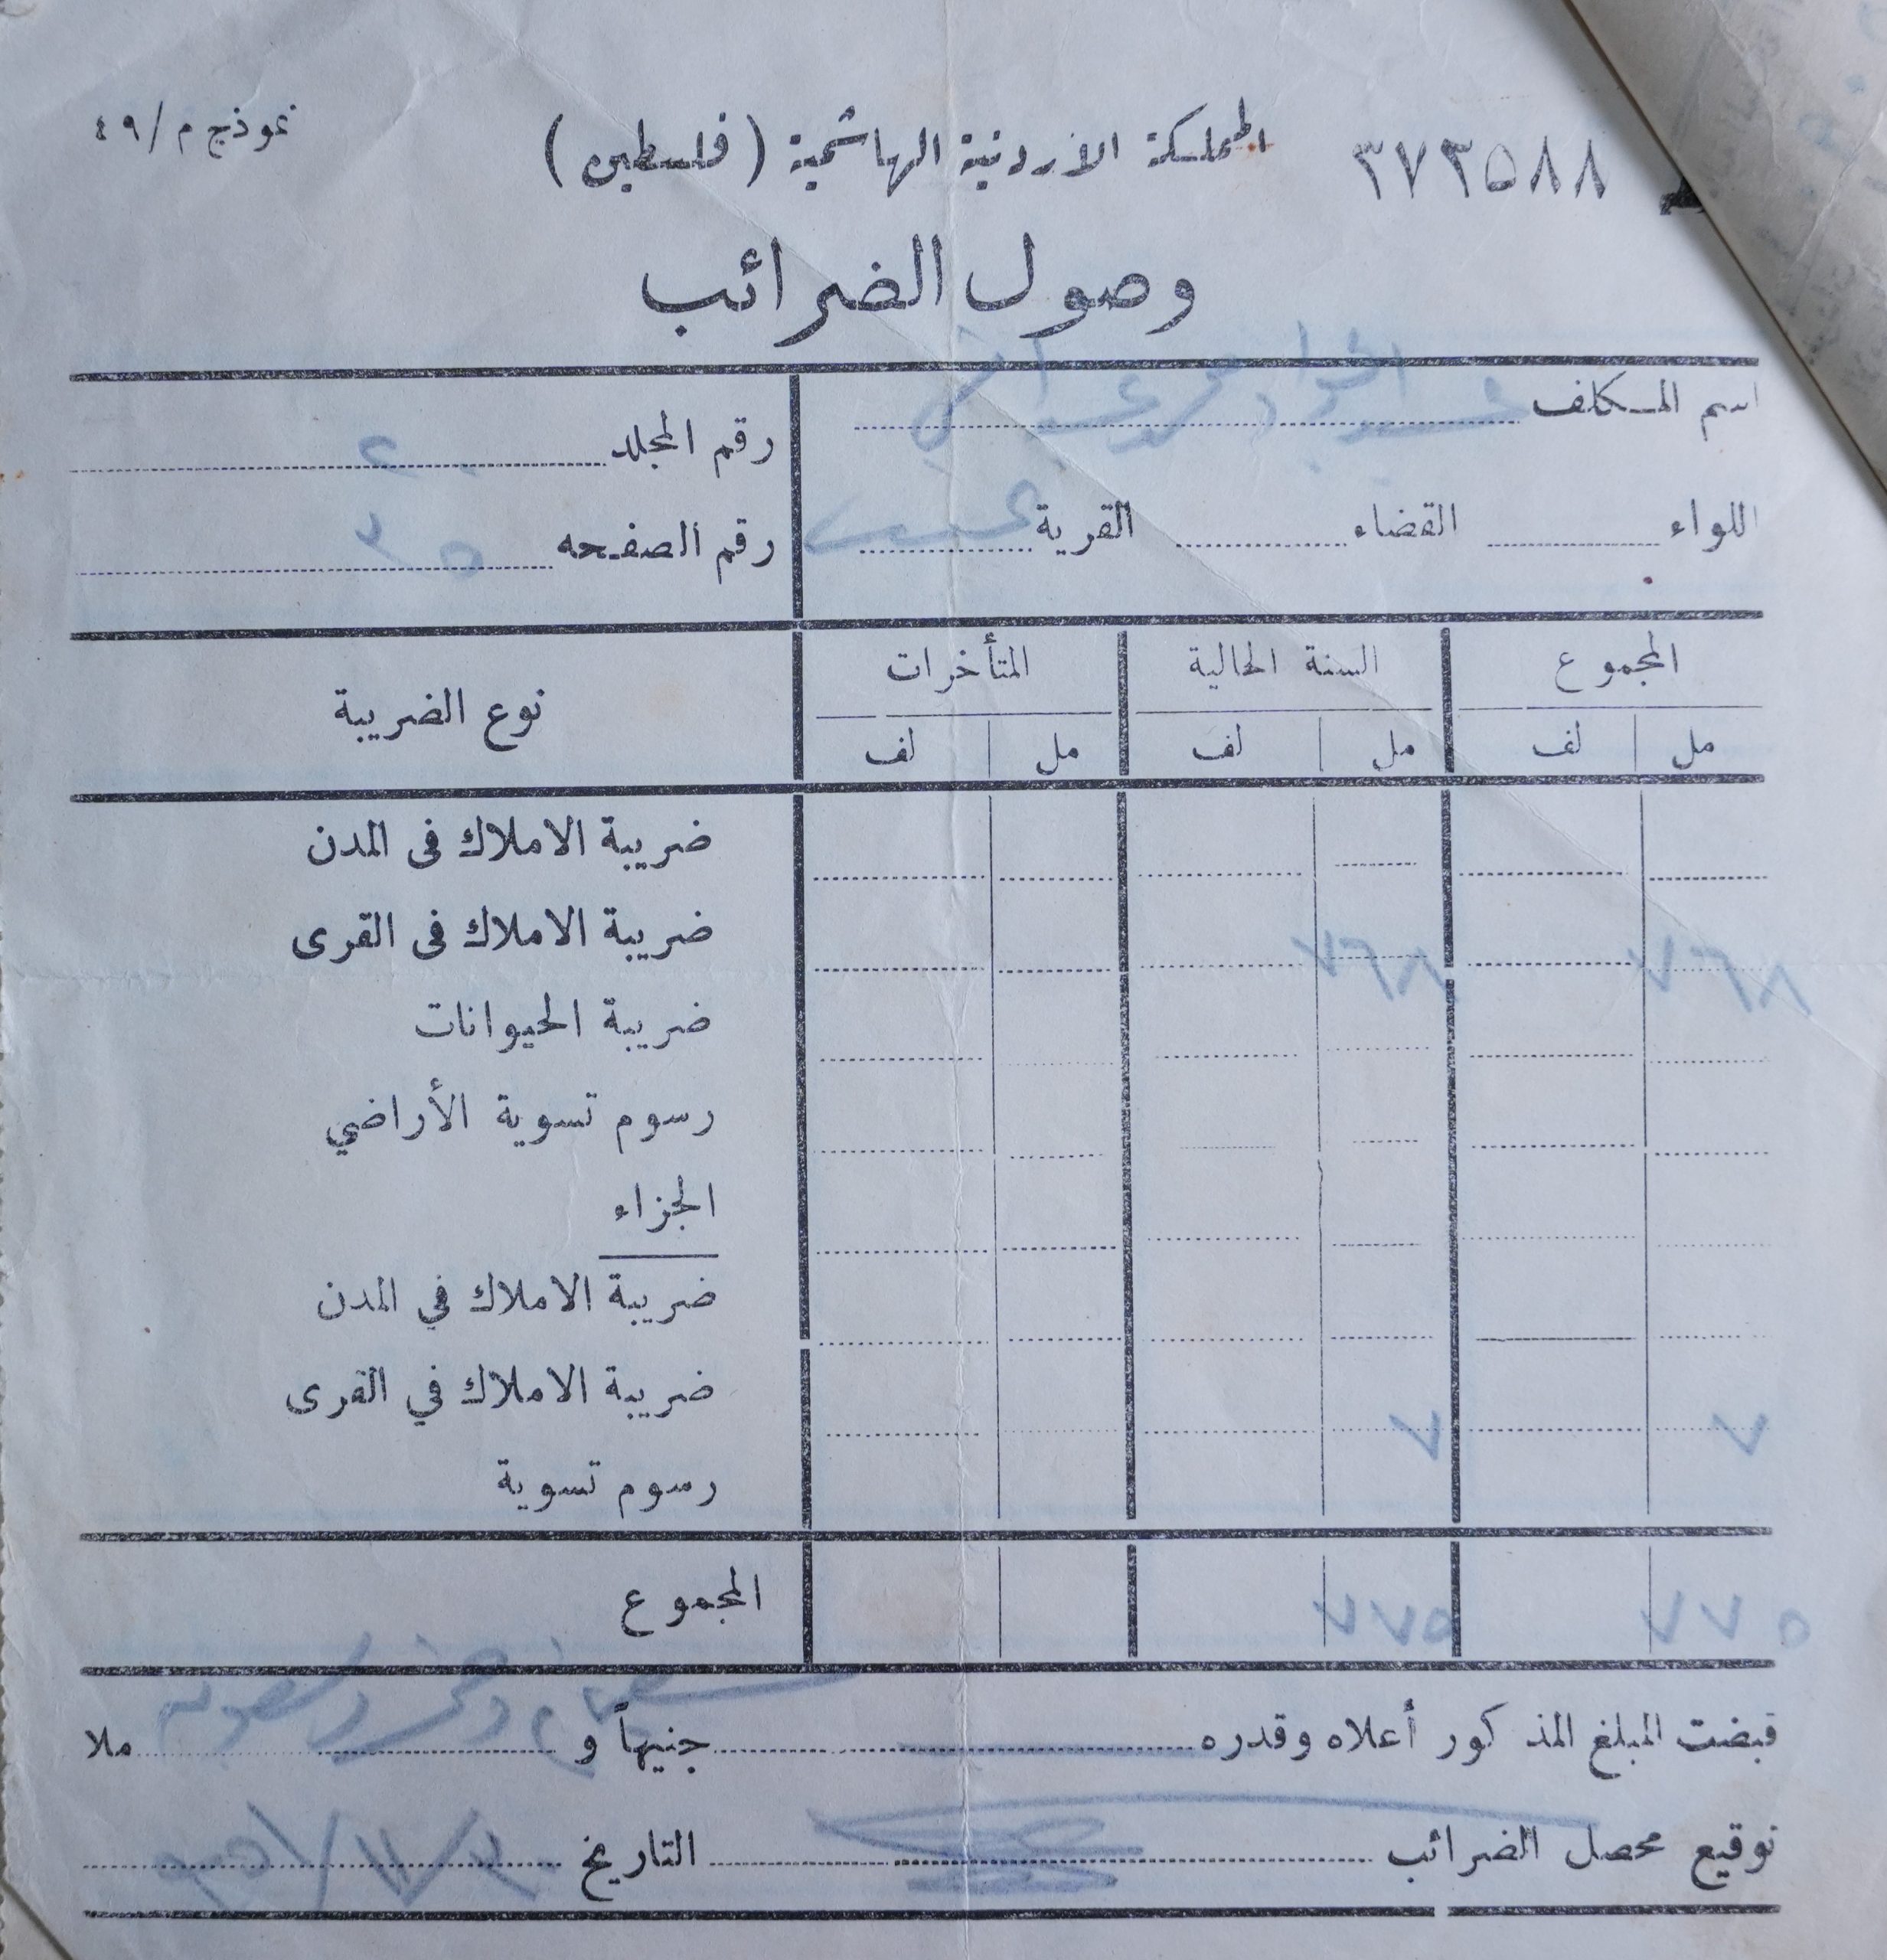 ٣٧٣٥٨٨
المملكة الاردنية الهاشمية (فلسطين)
نموذج م/٤٩
وصول الضرائب
اسم المكلف
رقم المجلد ٢
اللواء القضاء القرية
رقم الصفحه ٣٥
المجموع السنة الحالية المتأخرات نوع الضريبة
مل لف مل لف مل لف
ضريبة الاملاك فى المدن
٧٦٨ ٧٦٨ ضريبة الاملاك فى القرى
ضريبة الحيوانات
رسوم تسوية الأراضي
الجزاء
ضريبة الاملاك في المدن
٧ ٧ ضريبة الاملاك في القرى
رسوم تسوية
٧٧٥ ٧٧٥ المجموع
قبضت المبلغ المذكور أعلاه وقدره جنيهاً و ملا
توقيع محصل الضرائب التاريخ